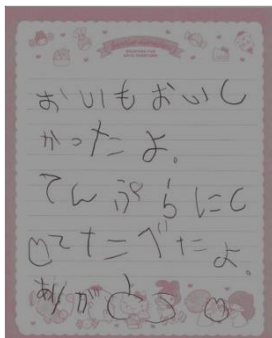 おいもおいし
かったよ。
てんぷらにし
てたべたよ。
ありがとう